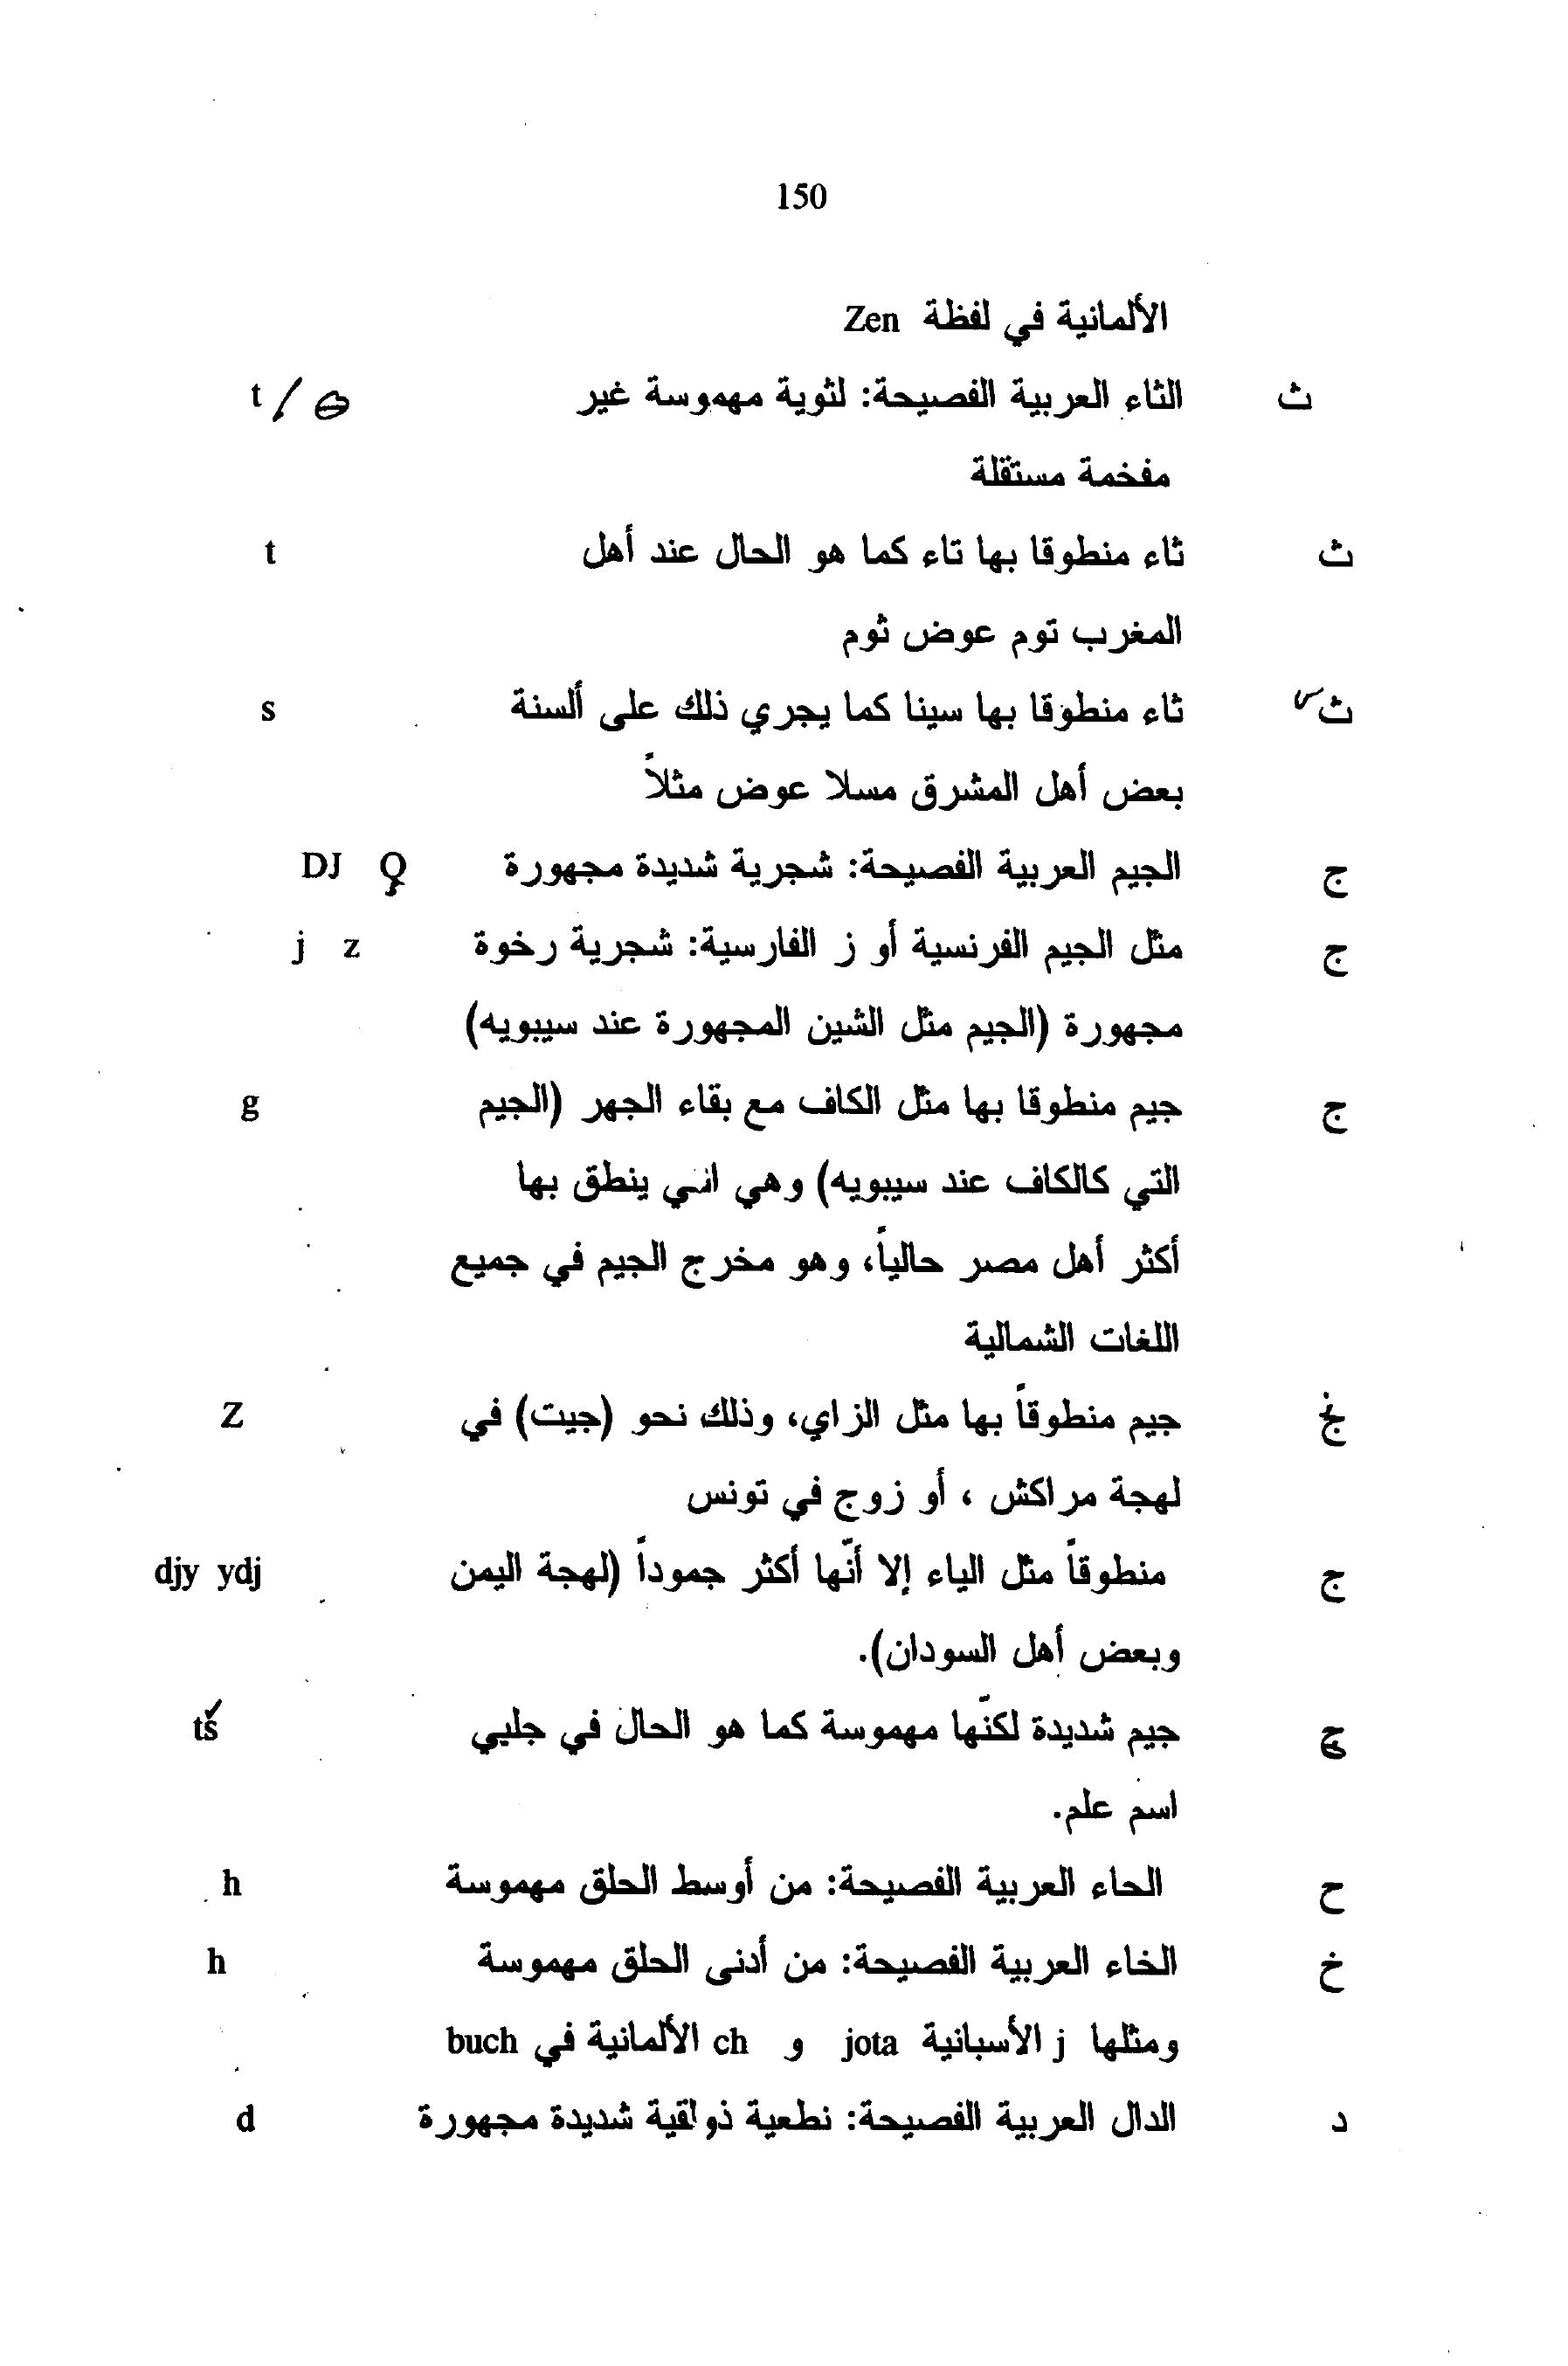 150
الألمانية في لفظة Zen
ث الثاء العربية الفصيحة: لثوية مهموسة غير t / θ
مفخمة مستقلة
ث ثاء منطوقا بها تاء كما هو الحال عند أهل t
المغرب توم عوض ثوم
ث ثاء منطوقا بها سينا كما يجري ذلك على ألسنة s
بعض أهل المشرق مسلا عوض مثلاً
ج الجيم العربية الفصيحة: شجرية شديدة مجهورة DJ
ج مثل الجيم الفرنسية أو ز الفارسية: شجرية رخوة j z
مجهورة (الجيم مثل الشين المجهورة عند سيبويه)
ج جيم منطوقا بها مثل الكاف مع بقاء الجهر (الجيم g
التي كالكاف عند سيبويه) وهي ينطق بها
أكثر أهل مصر حالياً، وهو مخرج الجيم في جميع
اللغات الشمالية
جيم منطوقاً بها مثل الزاي، وذلك نحو (جيت) في Z
لهجة مراكش ، أو زوج في تونس
ج منطوقاً مثل الياء إلا أنّها أكثر جموداً (لهجة اليمن djy ydj
وبعض أهل السودان).
چ جيم شديدة لكنّها مهموسة كما هو الحال في جلبي tš
اسم علم.
ح الحاء العربية الفصيحة: من أوسط الحلق مهموسة h
خ الخاء العربية الفصيحة: من أدنى الحلق مهموسة h
ومثلها j الأسبانية jota و ch الألمانية في buch
د الدال العربية الفصيحة: نطعية ذولقية شديدة مجهورة d